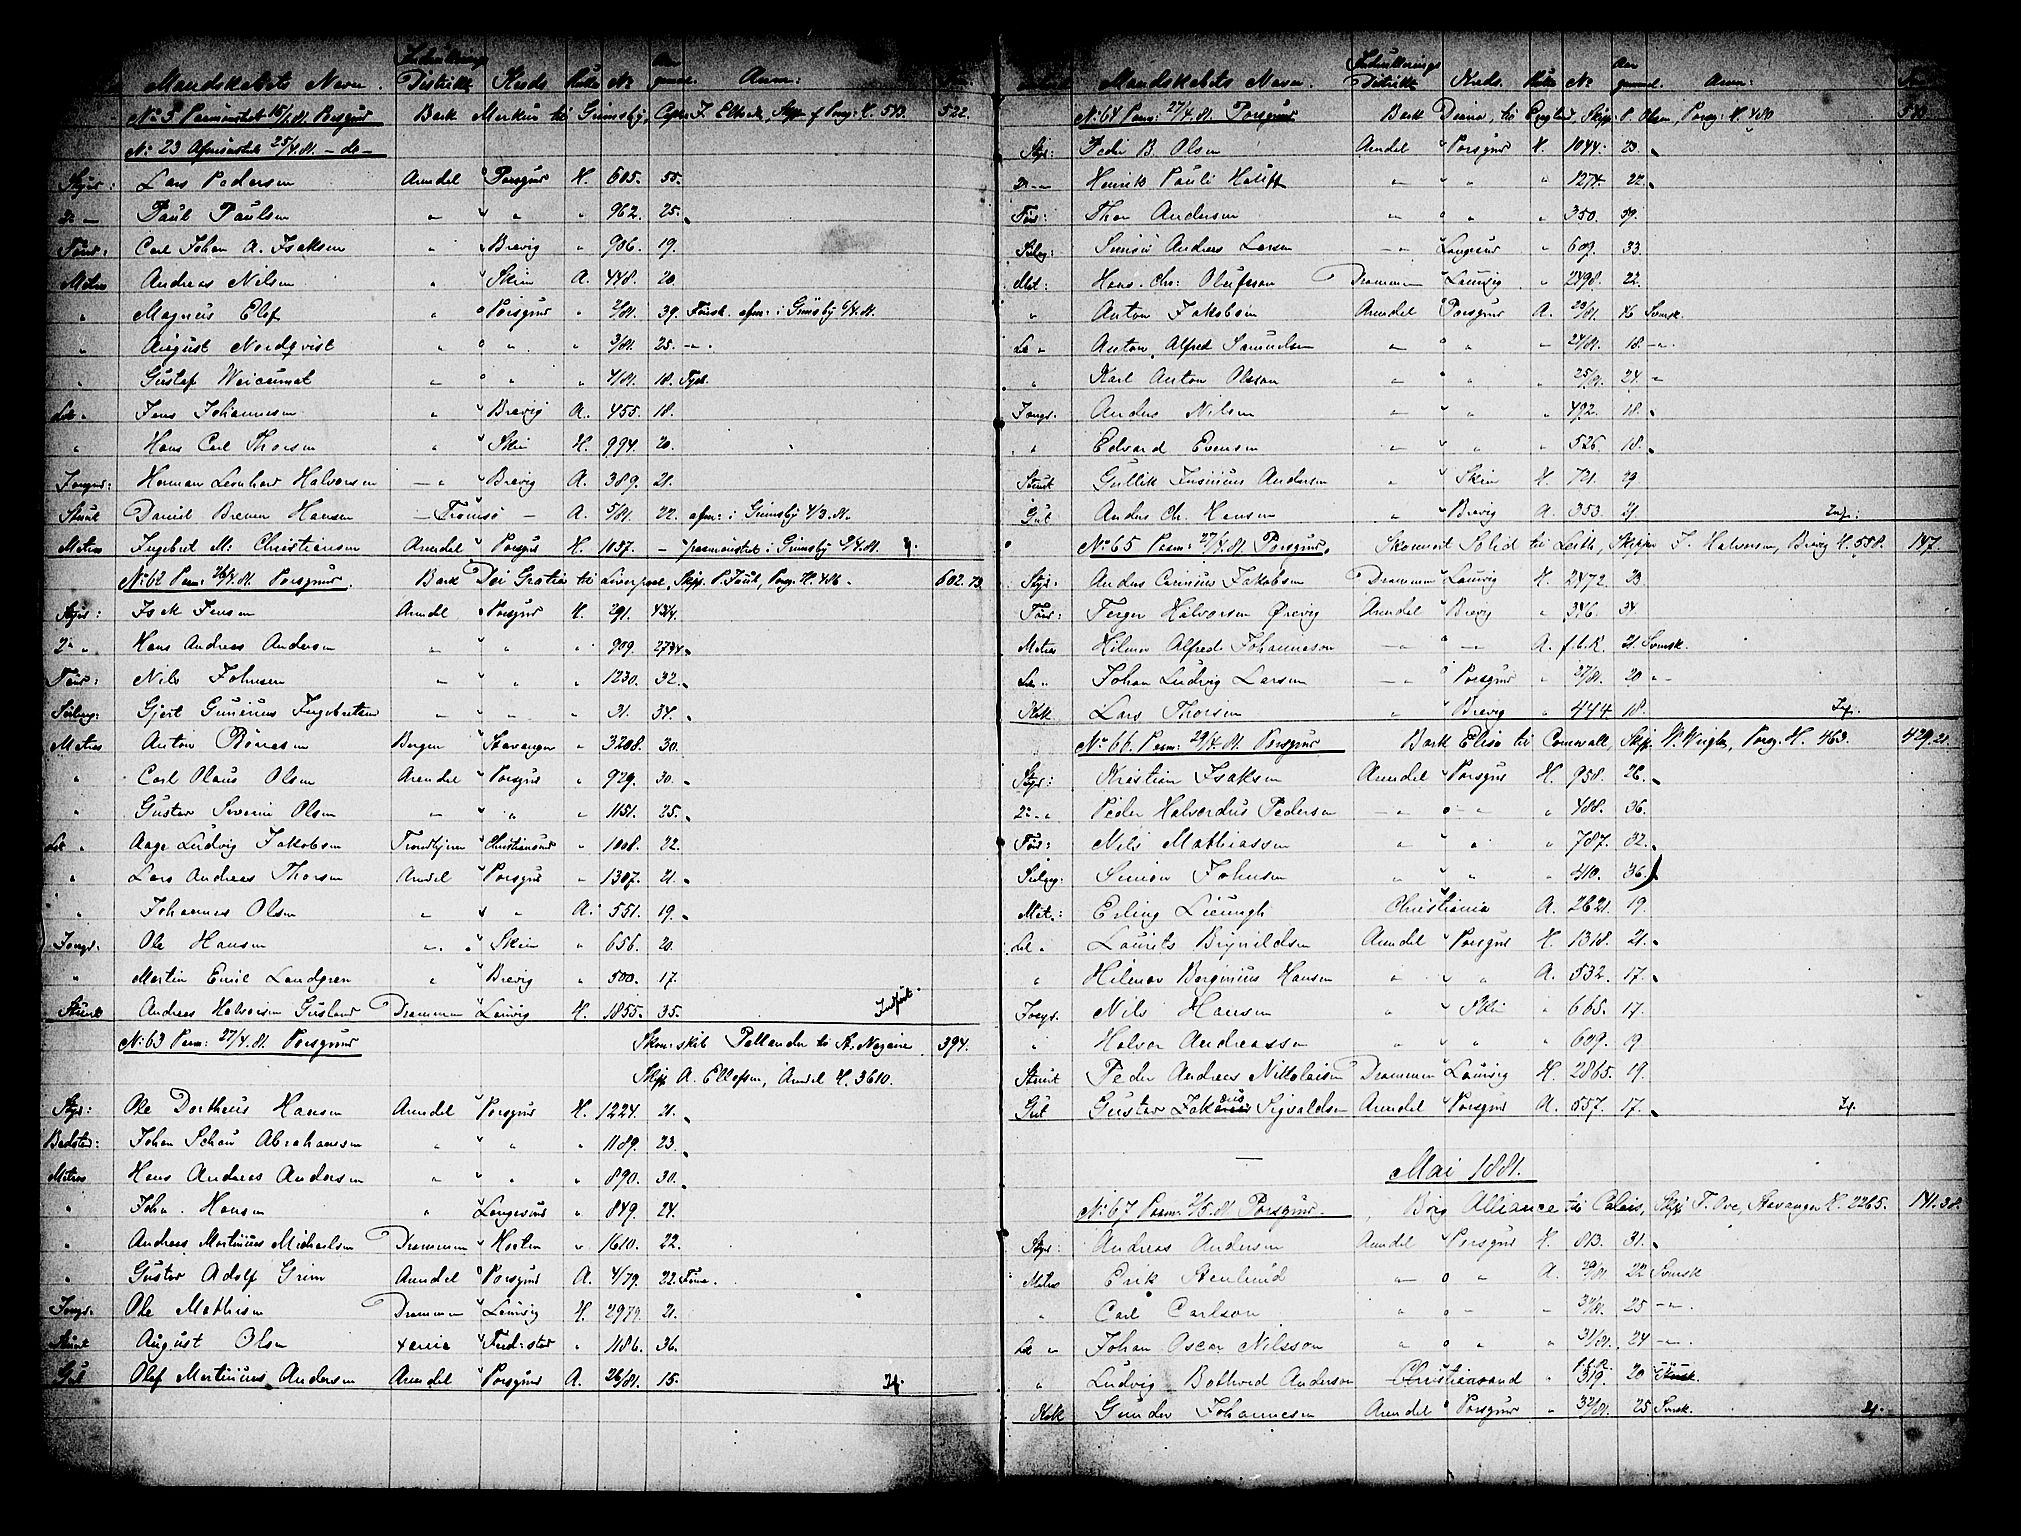 Mandskabets Navn. Indrullerings Distrikt Kreds Rulle No gammel. Anm:
No 5 Paamönstret 15/1 81 Porsgrund Bark Merkur til Grimsby, Capt. F. Ellesen, Porsg: H. 503. 522.
No 23 Afmönstret 25/4 81. - do -
Styrm: Lars Pedersen Arendal Porsgrund H. 605. 55.
2 - Paul Paulsen " " " 962. 25.
Tömr: Carl Johan A. Isaksen " Brevig " 906. 19.
Matros Andreas Nilsen " Skien A. 448. 20.
" Magnus Elef " Porsgrund " 2/81. 39. Finsk. afm: i Grimsby 6/4 81.
" August Nordqvist " " " 3/81. 25. - " -
" Gustaf Weicumat " " " 4/81. 18. Tysk.
Let " Jens Johannesen " Brevig A. 455. 18.
" Hans Carl Thorsen " Skien H. 994. 20.
Jungm: Herman Leonhard Halvorsen - " Brevig A. 389. 21.
Stuert Daniel Brener Hansen - Tromsø - A. 5/81. 22. afm: i Grimsby 4/3 81.
Matros Ingebret M: Christiansen Arendal Porsgrund H. 1057. - paamönstret i Grimsby 9/4 81.
No 62 Paam: 26/4 81 Porsgrund. Bark Dei Gratia til Liverpool, Skipp. P. Juul, Porsg. H. 416. 602.73
Styrm: Isak Jensen Arendal Porsgrund H. 291. 43 3/4.
2 " Hans Andreas Andersen " " " 909. 27 3/4.
Tömr: Nils Johnsen " " " 1230. 32.
Seilmag: Gjert Gunerius Ingebretsen " " " 31. 34.
Matros Anton Rönesen Bergen Stavanger " 3208. 30.
" Carl Olaus Olsen Arendal Porsgrund " 929. 30.
" Gustav Severin Olsen " " " 1151. 25.
Let " Aage Ludvig Jakobsen Trondhjem Christiansund " 1008. 22.
" Lars Andreas Thorsen Arendal Porsgrund " 1307. 21.
" Johannes Olsen " " A. 551. 19.
Jungm: Ole Hansen " Skien " 656. 20.
" Martin Emil Landgren " Brevig " 500. 17.
Stuert Andreas Halvorsen Gusland Drammen Laurvig H. 1855. 35. Indført.
No 63 Paam: 27/4 81. Porsgrund Skonskib Pallander til St. Nazaire 394.
Skipp A. Ellefsen, Arendal H. 3610.
Styrm: Ole Dortheus Hansen Arendal Porsgrund H. 1224. 21.
Badstm: Johan Schau Abrahamsen " " " 1189. 23.
Matros Hans Andreas Andersen " " " 890. 30.
" Joh. Hansen " Langesund " 849. 24.
" Andreas Martinius Michaelsen Drammen Horten " 1610. 22.
" Gustav Adolf Grim Arendal Porsgrund A. 4/79. 22. Finne.
Jungm: Ole Mathisen Drammen Laurvig H. 2979. 21.
Stuert August Olsen Xania Fredrstad " 1186. 36.
Gut Olaf Martinius Andersen Arendal Porsgrund A. 26/81. 15. If.
Mandskabets Navn. Indrullerings Distrikt Kreds. Rulle No gammel. Anm:
No 64 Paam: 27/4 81. Porsgrund Bark Diana, til England, Skipp: P. Olsen, Porsg: H. 430
Styrm: Peder B. Olsen Arendal Porsgrund H. 1044. 23.
2 - " Henrik Pauli Holst - " " 1274. 22.
Tömr: Thor Andersen - " " 350. 59.
Seilmag: Simon Andreas Larsen - " Langesund " 609. 33.
Mat: Hans Chr: Olufsson Drammen Laurvig " 2490. 22.
" Anton Jakobsen Arendal Porsgrund A. 23/81. 16 Svensk.
Let " Anton Alfred Samuelsen - " " " 24/81. 18. - " -
" Karl Anton Olsson - " " 25/81. 24. - "
Jungm: Anders Nilsen - " " 492. 18.
" Edvard Evensen - " " 526. 18.
Stuert Gullik Andersen " Skien H. 721. 29
Gut Anders Chr. Hansen " Brevig A. 353. 21 Indf:
No 65 Paam: 27/4 81. Porsgrund. Skonnert Solid til Leith, Skipper J. Halvorsen, Brevig H. 558. 147.
Styrm: Anders Carinius Jakobsen Drammen Laurvig H. 2472. 33
Tömr: Terger Halvorsen Ørevig Arendal Brevig " 346. 34
Matros Hilmer Alfred Johannesson - " - " - A. f.b.R. 21. Svensk.
Let " Johan Ludvig Larsen - " Porsgrund " 27/81. 20 " -
Kok Lars Thorsen " Brevig " 444. 18. If.
No 66. Paam: 29/4 81. Porsgrund Bark Elise til Cornwall, Skipp. W. Porsg. H. 463. 429.21
Styrm: Kristian Isaksen Arendal Porsgrund H. 958. 26.
2 - " Peder Halvordus Pedersen - " - " 488. 36.
Tömr: Nils Mathiassen " " " 787. 32.
Seilmag: Simon Johnsen " " " 410. 36.
Mat: Erling Christiania A. 2621. 19.
Let " Laurits Brynildsen Arendal Porsgrund H. 1318. 21.
" Hilmar Berginius Hansen " " A. 532. 17.
Jungm. Nils Hansen " Skien " 665. 17.
" Halvor Andreassen " " " 609. 19
Stuert Peder Andreas Nikolaisen Drammen Laurvig H. 2865. 19.
Gut Gustav Jakobius Sigvaldsen Arendal Porsgrund A. 557. 17. If.
Mai 1881.
No 67 Paam: 2/5 81 Porsgrund. Brig Alliance til Calais, Skipp T. Ove, Stavanger H. 2265. 141.38
Styrm: Andreas Andersen Arendal Porsgrund H. 813. 31.
Matros Erik Stenlund - " " A. 29/81. 22 Svensk
" Carl Carlson " " - 30/81. 25 - " -
Let " Johan Oscar Nilsson " " " 31/81. 24 - " -
" Ludvig Bothvid Anderson Christiansand " f.b.R. 319. 20 Svensk.
Kok Gunder Johannesen Arendal Porsgrund " 32/81. 25 Svensk. If.